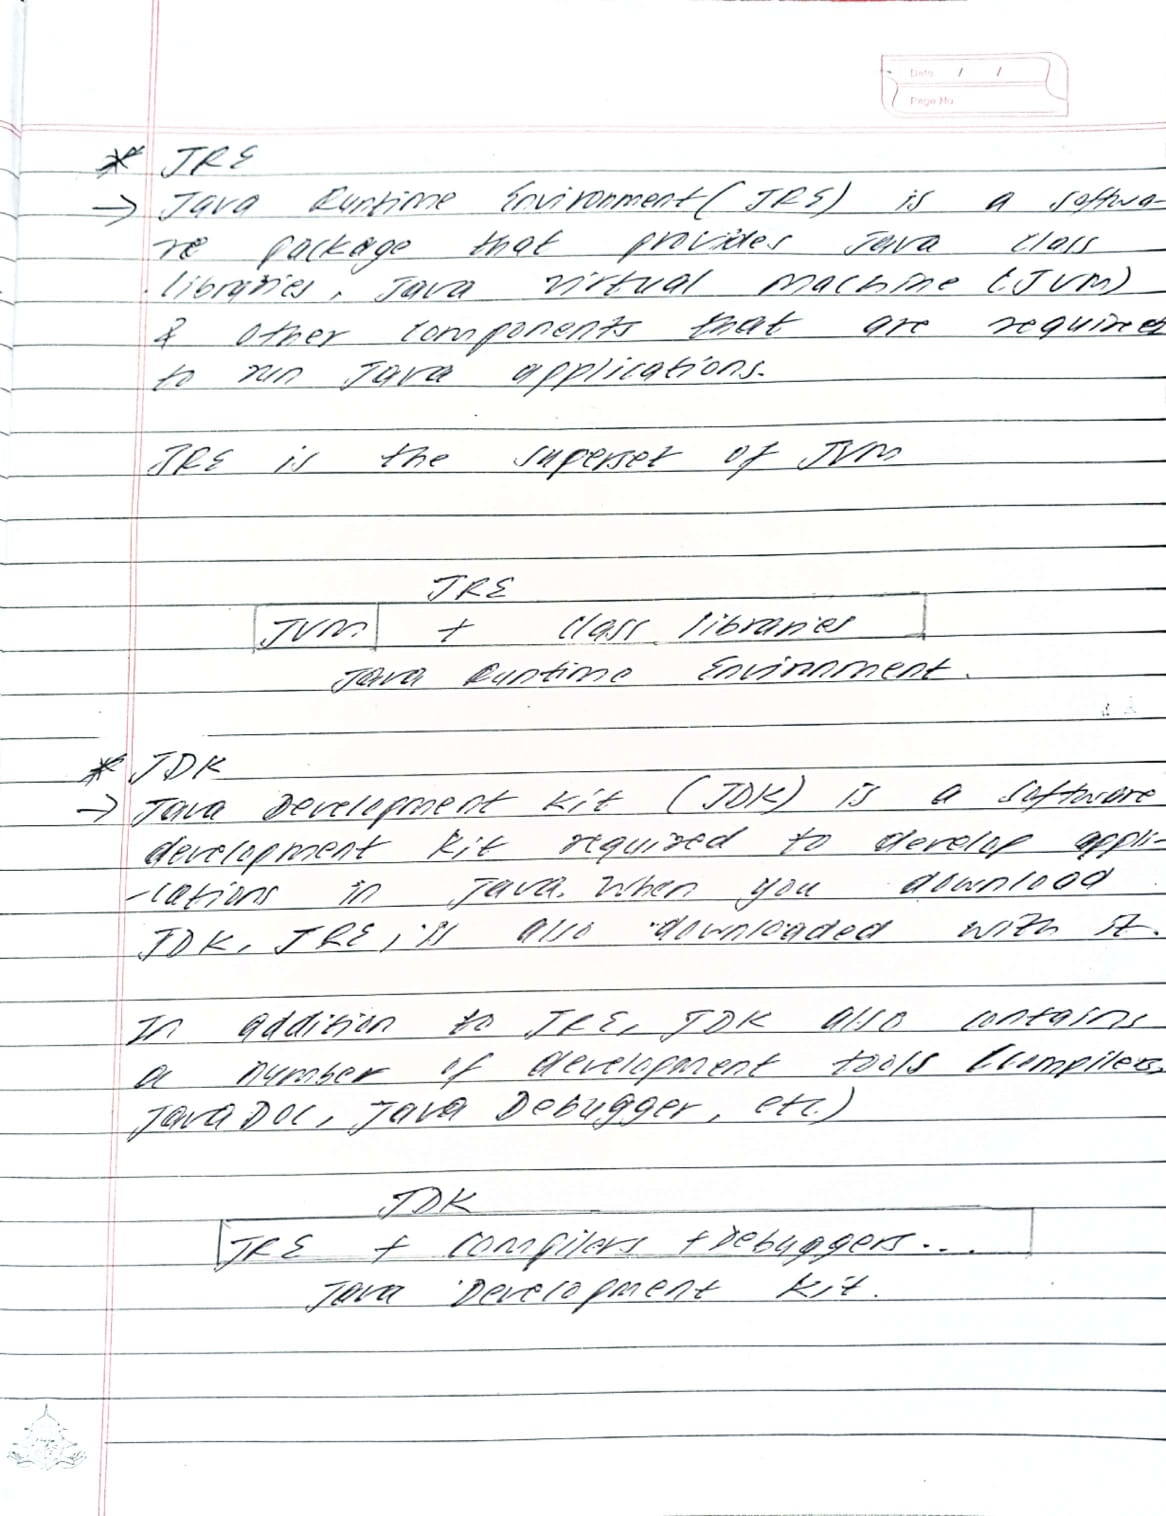 Date / /
Page No.
* JRE
→ Java Runtime Environment (JRE) is a softwa-
re package that provides Java class
libraries, Java virtual machine (JVM)
& other components that are required
to run Java applications.
JRE is the superset of JVM
JRE
JVM + class libraries
Java Runtime Environment.
* JDK
→ Java Development Kit (JDK) is a software
development kit required to develop appli-
-cations in Java. When you download
JDK, JRE is also downloaded with it.
In addition to JRE, JDK also contains
a number of development tools (compilers,
JavaDoc, Java Debugger, etc.)
JDK
JRE + compilers + Debuggers...
Java Development Kit.